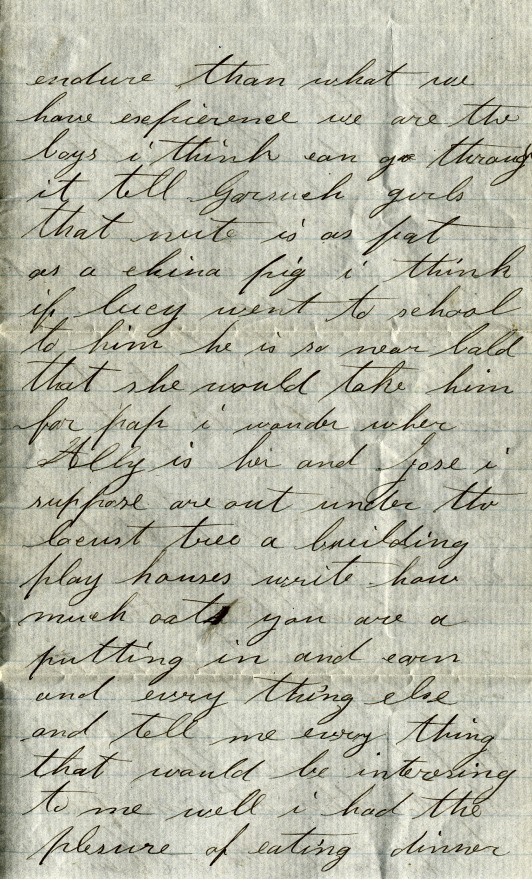 endure than what we
have expierence we are the
boys i think can go throug
it tell Gorsuch girls
that nute is as fat
as a china pig i think
if lucy went to school
to him he is so near bald
that she would take him
for pap i wonder wher
Ally is her and Jose i
suppose are out under the
locust tree a building
play houses write how
much oats you are a
putting in and corn
and evry thing else
and tell me evry thing
that would be interesing
to me well i had the
plesure of eating dinner